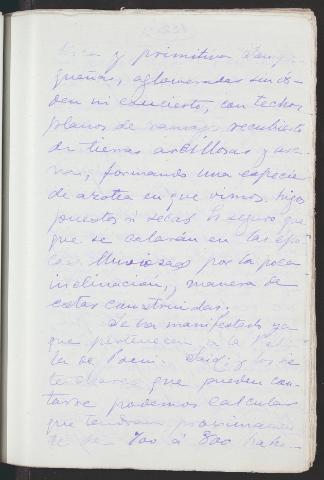 y primitivos
queñas, aglomeradas sin ór-
den ni concierto, con techos
planos de ramaje recubierto
de tierras arcillosas y are-
nas, formando una especie
de azotea en que vimos higos
puestos á secar. Es seguro que
que se calarán en las épo-
cas lluviosas por la poca
inclinación, y manera de
estar construidas.
Se ha manifestado ya
que pertenecen á la
la de
que pueden con-
tarse podemos calcular
que tendrán proximamen-
te de 700 á 800 habi-